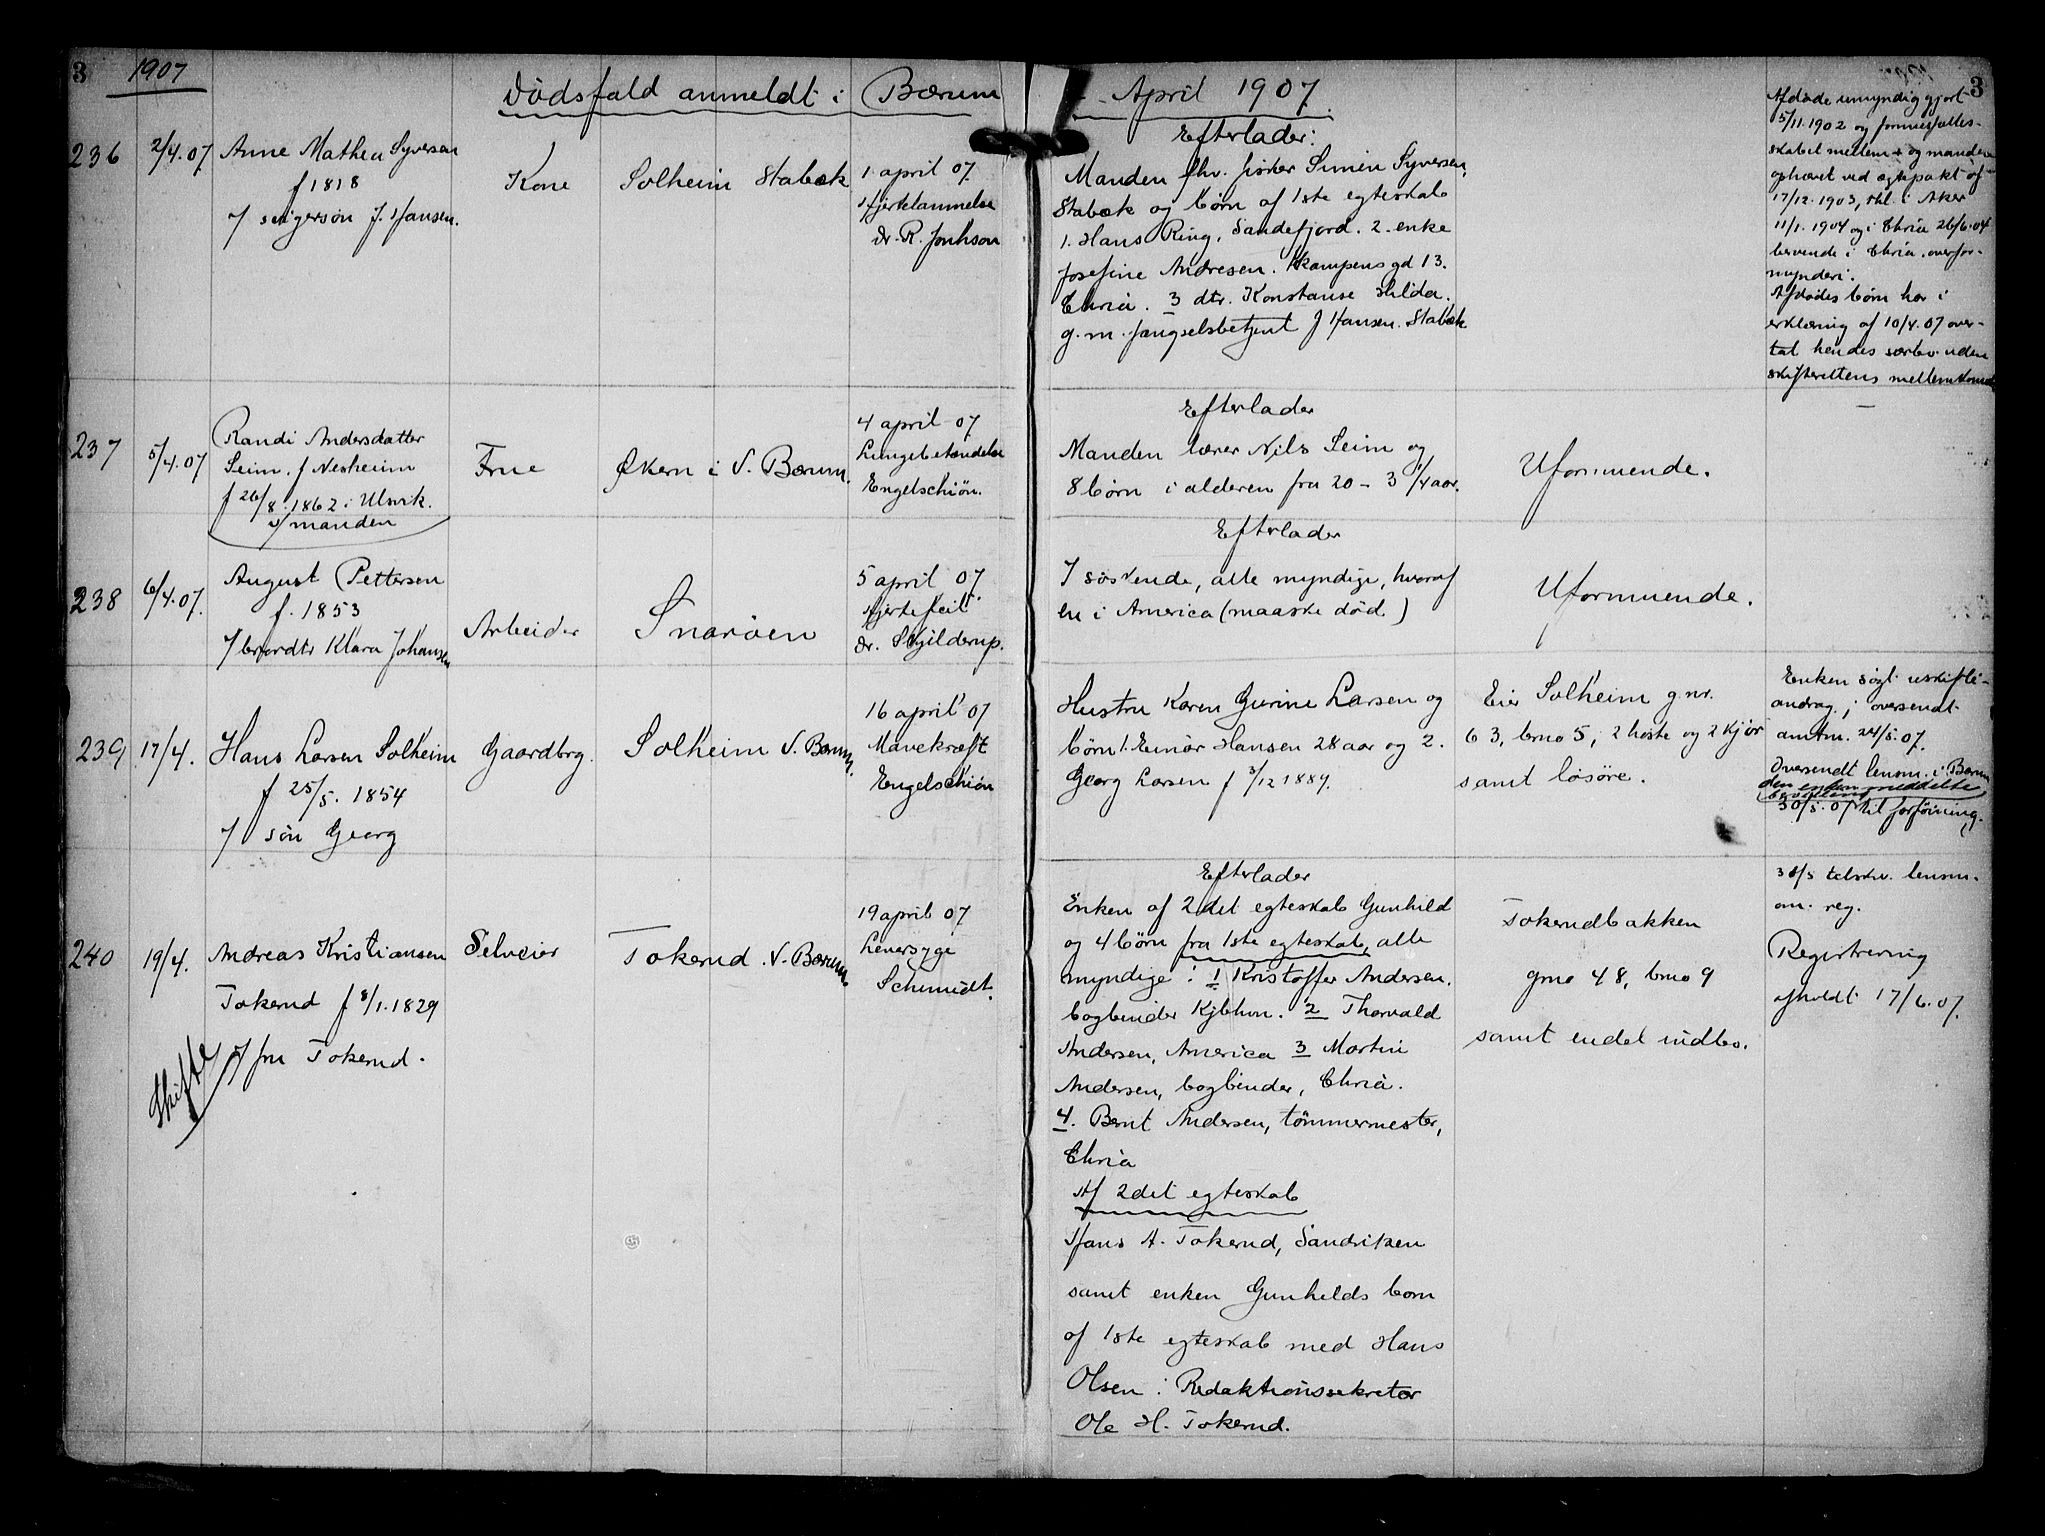 3 1907
Dödsfald anmeldt i Bærum
236 2/4.07 Anne Mathea Syversen
f 1818
/ svigersøn J. Hansen.
Kone
Solheim Stabæk
1 april 07
Hjertelammelse
dr. R. Jonhson
237 5/4.07 Randi Andersdatter
Seim. f Nesheim
f 26/8. 1862 i Ulvik.
v/ manden
Frue
Økern i V. Bærum.
4 april 07
Lungebetændelse
Engelschiön.
238 6/4.07. August Pettersen
f. 1853
/ brordtr Klara Johansen
Arbeider
Snaröen
5 april 07
Hjertefeil
dr. Schilderup.
239 17/4. Hans Larsen Solheim
f 25/5. 1854
/ sön Georg
Gaardbrg.
Solheim V. Bærum.
16 april 07
Mavekræft
Engelschiön
240 19/4. Andreas Kristiansen
Tokerud f 8/1.1829
/ fru Tokerud.
Skifte
Selveier
Tokerud V. Bærum.
19 april 07
Leversyge
Schmidt.
April 1907 3
Efterlader:
Manden fhv. fisker Simen Syversen,
Stabæk og børn af 1ste egteskab
1. Hans Ring, Sandefjord. 2. enke
Josefine Andresen. Kampens gd 13.
Chria. 3 dtr. Konstanse Hilda.
g. m. fængselsbetjent J Hansen. Stabæk
Afdøde umyndiggjort
5/11.1902 og formuesfælles-
skabet mellem + og manden
ophævet ved ægtepakt af
17/12.1903, thl. i Aker
11/1. 1904 og i Chria 26/6.04
beroende i Chria. overfor-
mynderi.
Afdödes börn har i
erklæring af 10/4.07 over-
tat hendes særbo uden
skifterettens mellemkomst
Efterlader
Manden lærer Nils Seim og
8 börn i alderen fra 20 - 3 1/4 aar.
Uformuende.
Efterlader
7 söskende, alle myndige, hvoraf
en i America (maaske död)
Uformuende.
Hustru Karen Gurine Larsen og
börn 1. Einar Hansen 28 aar og 2.
Georg Larsen f 3/12 1884.
Eier Solheim gnr.
63, brno 5, 2 heste og 2 kjör
samt lösöre.
Enken sögt uskifte-
andrag.; oversendt
amtm. 24/5.07.
Oversendt lensm. i Bærum
den enken meddelte
bevilling
30/5.07 til forföining.
Efterlader
Enken af 2det egteskab Gunhild
og 4 börn fra 1ste egteskab, alle
myndige: 1 Kristoffer Andersen.
bogbinder Kjbhvn. 2 Thorvald
Andersen, America 3 Martin
Andersen, bogbinder, Chria.
4. Bernt Andersen, tömmermester,
Chria
Af 2det egteskab
Hans A. Tokerud, Sandviken
samt enken Gunhilds börn
af 1ste egteskab med Hans
Olsen: Redaktionssekretær
Ole H. Tokerud.
Tokerudbakken
gno 48, brno 9
samt endel indbo.
tilskr. lensm.
om. reg.
Registrering
afholdt 17/6.07.